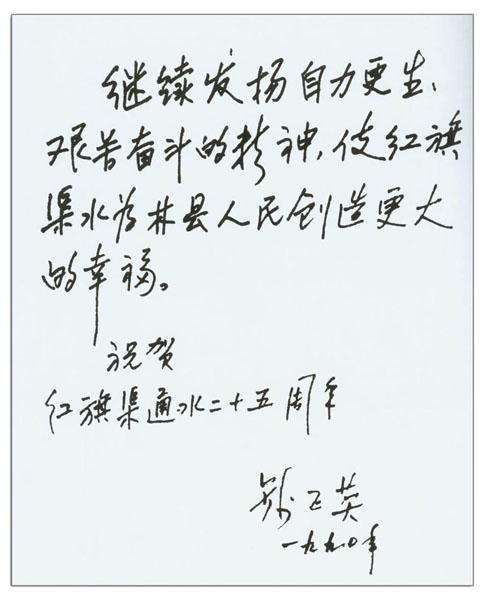 继续发扬自力更生、
艰苦奋斗的精神，使红旗
渠水为林县人民创造更大
的幸福。
祝贺
红旗渠通水二十五周年
钱正英
一九九〇年